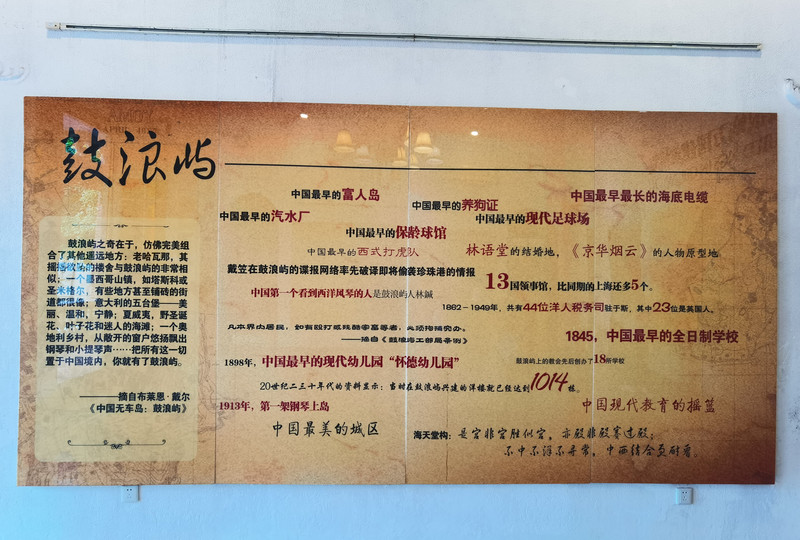 鼓浪屿
鼓浪屿之奇在于,仿佛完美组
合了其他遥远地方:老哈瓦那,其
摇摇欲坠的楼舍与鼓浪屿的非常相
似;一个墨西哥山镇,如塔斯科或
圣米格尔,有些地方甚至铺砖的街
道都很像;意大利的五台堡——美
丽、温和、宁静;夏威夷,野圣诞
花、叶子花和迷人的海滩;一个奥
地利乡村,从敞开的窗户悠扬飘出
钢琴和小提琴声……把所有这一切
置于中国境内,你就有了鼓浪屿。
——摘自布莱恩·戴尔
《中国无车岛:鼓浪屿》
中国最早的富人岛
中国最早的养狗证
中国最早最长的海底电缆
中国最早的汽水厂
中国最早的现代足球场
中国最早的保龄球馆
中国最早的西式打虎队
林语堂的结婚地,《京华烟云》的人物原型地
戴笠在鼓浪屿的谍报网络率先破译即将偷袭珍珠港的情报
13国领事馆,比同期的上海还多5个。
中国第一个看到西洋风琴的人是鼓浪屿人林鍼
1862-1949年,共有44位洋人税务司驻于斯,其中23位是英国人。
凡本界内居民,如有殴打或残酷牵畜等者,
——摘自《鼓浪屿工部局条例》
1845,中国最早的全日制学校
1898年,中国最早的现代幼儿园“怀德幼儿园”
鼓浪屿上的教会先后创办了18所学校
20世纪二三十年代的资料显示:当时在鼓浪屿兴建的洋楼就已经达到1014栋。
1913年,第一架钢琴上岛
中国现代教育的摇篮
中国最美的城区
海天堂构:是宫非宫胜似宫,亦殿非殿赛过殿;
不中不洋不寻常,中西结合更耐看。